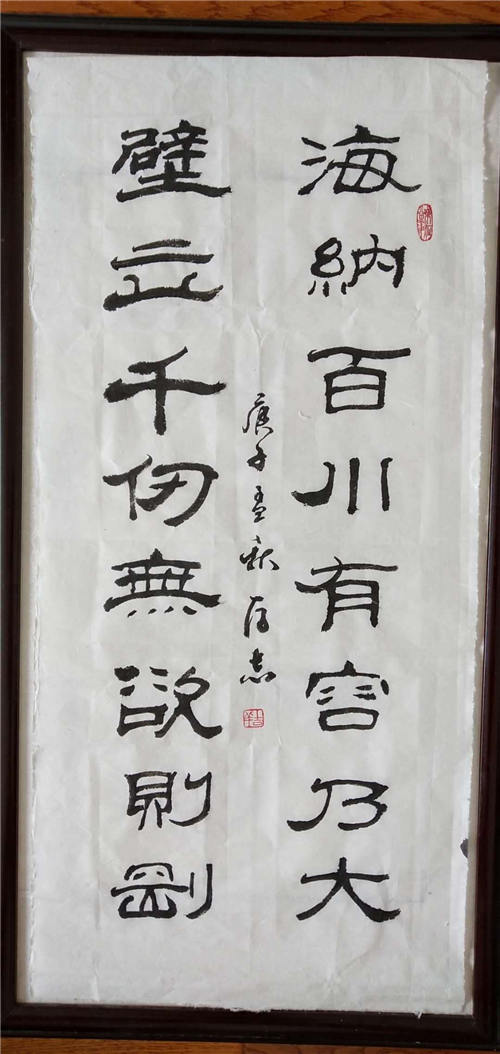 海納百川有容乃大
庚子孟秋存志
壁立千仞無欲則剛